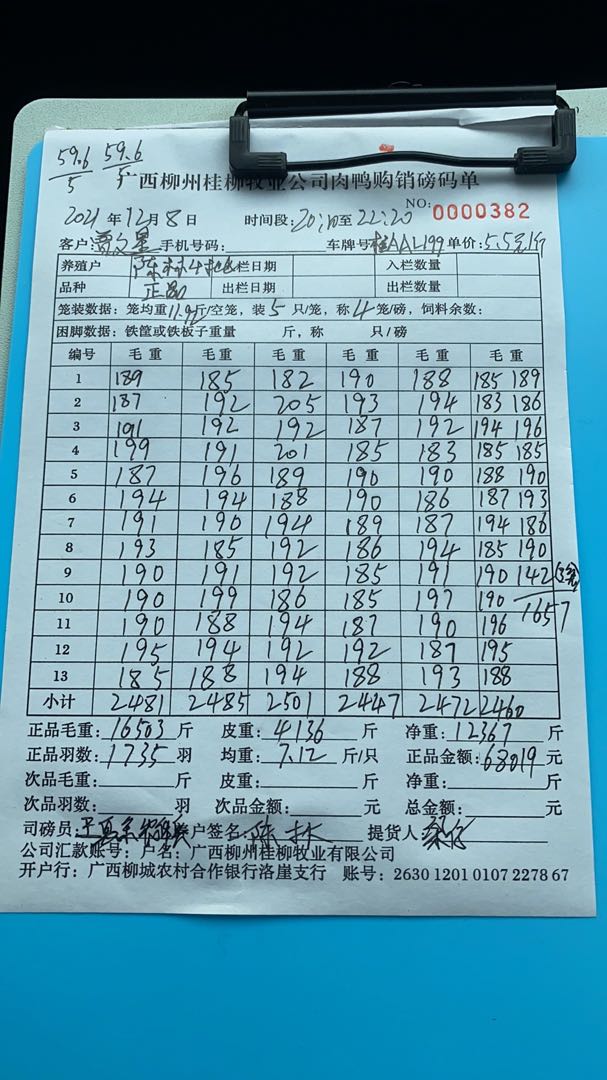 59.6 59.6
5 5
广西柳州桂柳牧业公司肉鸭购销磅码单
NO: 0000382
2021 年 12 月 8 日 时间段: 20:10 至 22:20
客户: 手机号码: 车牌号 桂AAL199 单价: 5.5元/斤
养殖户 入栏日期 入栏数量
品种 正品 出栏日期 出栏数量
笼装数据: 笼均重 11.92 斤/空笼, 装 5 只/笼, 称 4 笼/磅, 饲料余数:
困脚数据: 铁筐或铁板子重量 斤, 称 只/磅
编号 毛重 毛重 毛重 毛重 毛重 毛重
1 189 185 182 190 188 185 189
2 187 192 205 193 194 183 186
3 191 192 192 187 192 194 196
4 199 191 201 185 183 185 185
5 187 196 189 190 190 188 190
6 194 194 188 190 186 187 193
7 191 190 194 189 187 194 186
8 193 185 192 186 194 185 190
9 190 191 192 185 191 190 142
10 190 199 186 185 197 190 1657
11 190 188 194 187 190 196
12 195 194 192 192 187 195
13 185 188 194 188 193 188
小计 2481 2485 2501 2447 2472 2460
正品毛重: 16503 斤 皮重: 4136 斤 净重: 12367 斤
正品羽数: 1735 羽 均重: 7.12 斤/只 正品金额: 68019 元
次品毛重: 斤 皮重: 斤 净重: 斤
次品羽数: 羽 次品金额: 元 总金额: 元
司磅员: 客户签名: 陈林 提货人:
公司汇款账号: 户名: 广西柳州桂柳牧业有限公司
开户行: 广西柳城农村合作银行洛崖支行 账号: 2630 1201 0107 2278 67